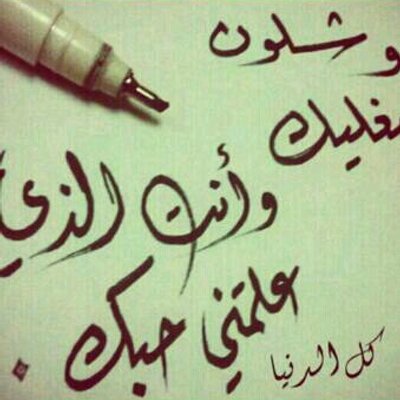 وشلون
مغليك
وأنت الذي
علمتني حبك
كل الدنيا